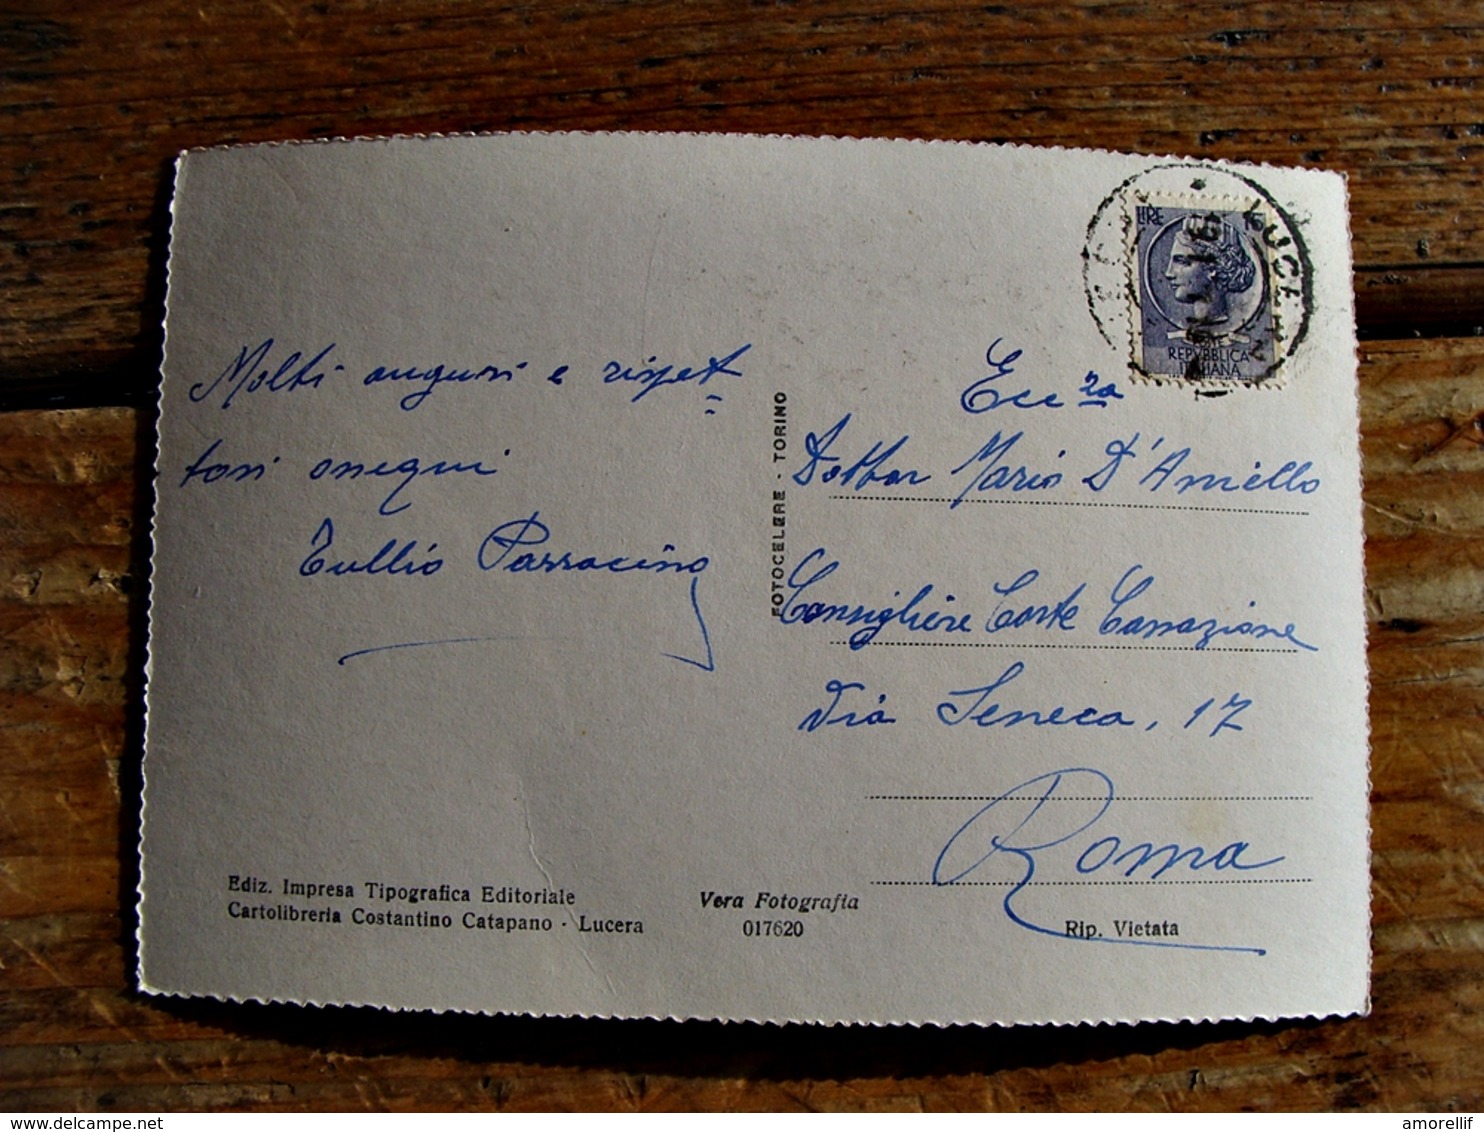 Molti auguri e rispet
tosi ossequi
Tullio Parracino
Ecc.za
Dottor Mario D'Aniello
Consigliere Corte Cassazione
Via Seneca, 17
Roma
LIRE
POSTE
REPVBBLICA
ITALIANA
LUCERA
FOTOCELERE - TORINO
Ediz. Impresa Tipografica Editoriale
Cartolibreria Costantino Catapano - Lucera
Vera Fotografia
017620
Rip. Vietata
delcampe.net
amorellif